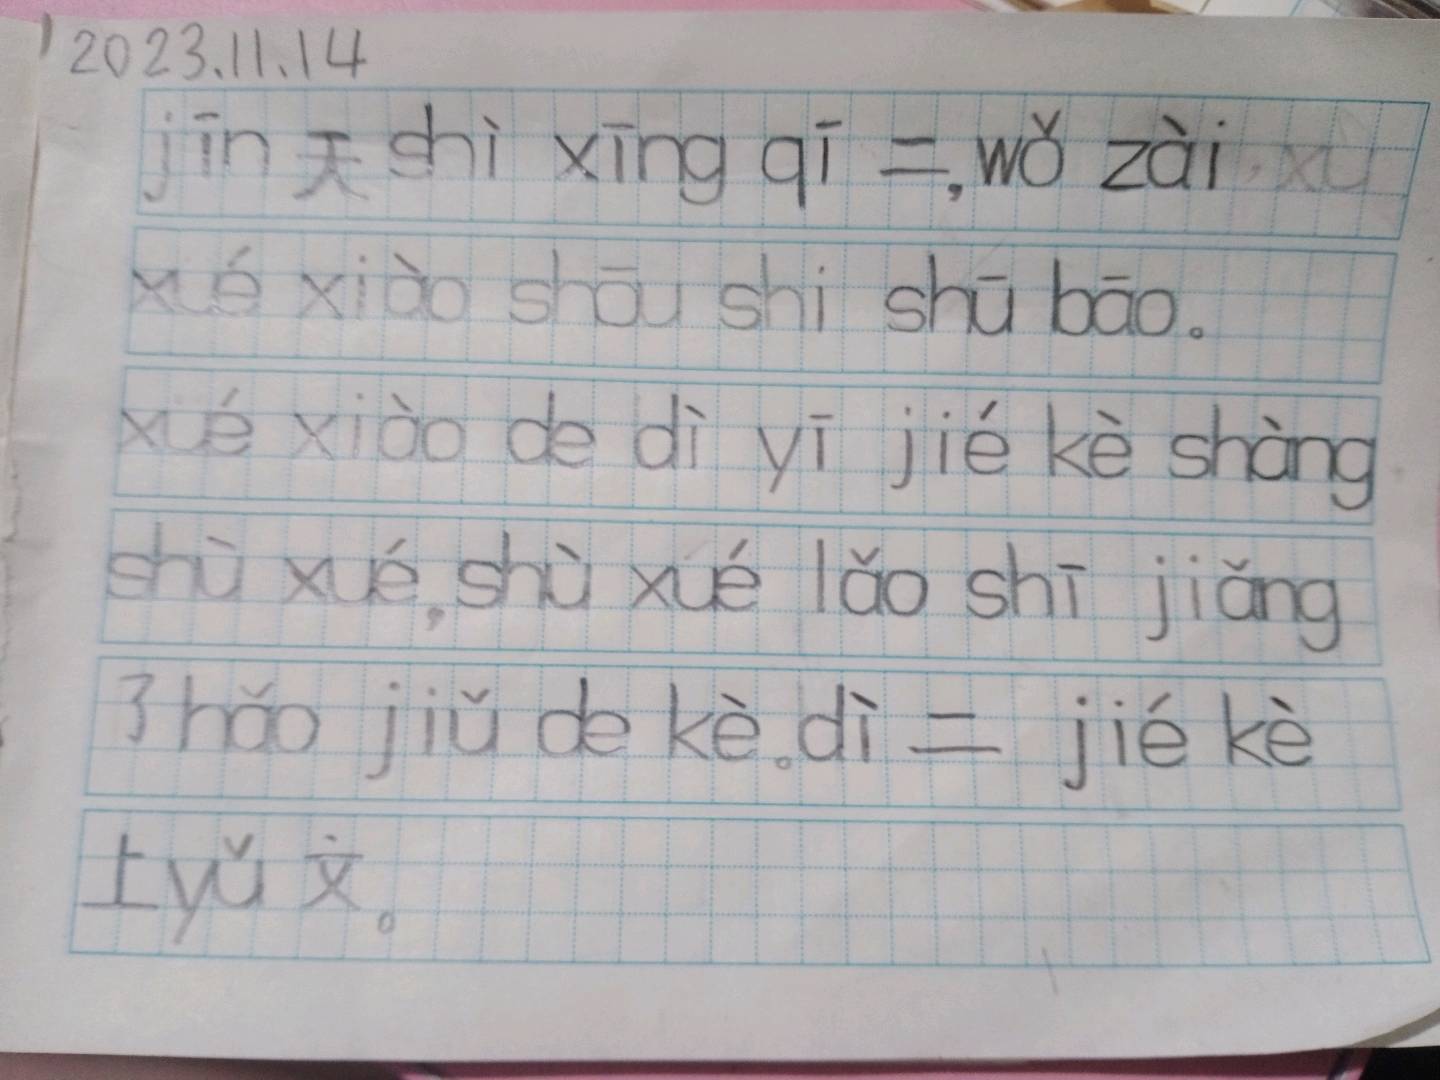 2023.11.14
jīn 天 shì xīng qī 二,wǒ zài
xué xiào shōu shi shū bāo。
xué xiào de dì yī jié kè shàng
shù xué,shù xué lǎo shī jiǎng
了hǎo jiǔ de kè。dì 二 jié kè
上yǔ 文。